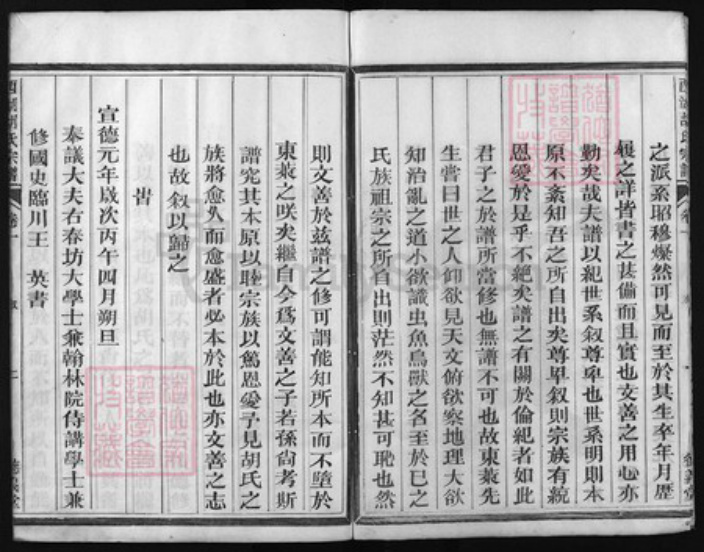 之派系昭穆燦然可見而至於其生卒年月歷
履之詳皆書之甚備而且實也文善之用心亦
勤矣哉夫譜以紀世系叙尊卑也世系明則本
原不紊知吾之所自出矣尊卑叙則宗族有統
恩愛於是乎不絶矣譜之有關於倫紀者如此
君子之於譜所當修也無譜不可也故東萊先
生嘗曰世之人仰欲見天文俯欲察地理大欲
知治亂之道小欲識虫魚鳥獸之名至於已之
氏族祖宗之所自出則茫然不知甚可恥也然
則文善於茲譜之修可謂能知所本而不墮於
東萊之咲矣繼自今為文善之子若孫尙考斯
譜究其本原以睦宗族以篤恩愛予見胡氏之
族將愈久而愈盛者必本於此也亦文善之志
也故叙以歸之
旹
宣德元年歲次丙午四月朔旦
奉議大夫右春坊大學士兼翰林院侍講學士兼
修國史臨川王 英書
胡氏宗譜 卷一